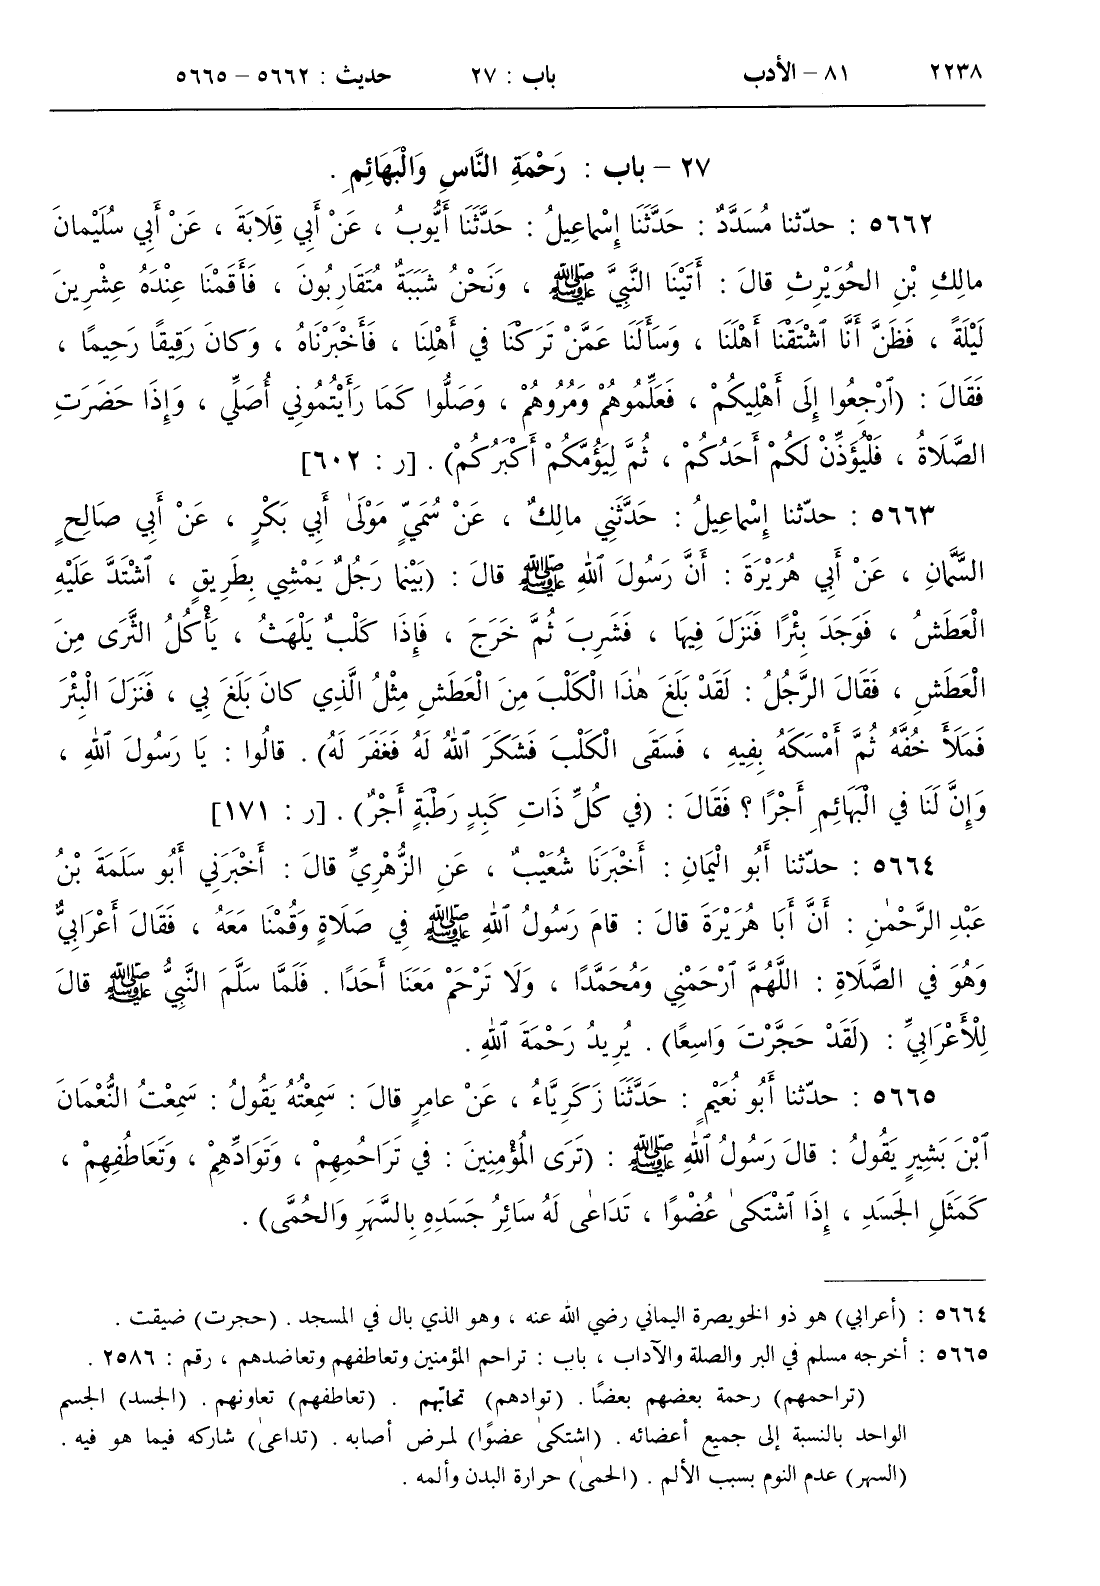 ٢٢٣٨ ٨١ – الأدب باب : ٢٧ حديث : ٥٦٦٢ – ٥٦٦٥
٢٧ – باب : رَحْمَةِ النَّاسِ وَالْبَهَائِمِ .
٥٦٦٢ : حدّثنا مُسَدَّدٌ : حَدَّثَنَا إِسْماعِيلُ : حَدَّثَنَا أَيُّوبُ ، عَنْ أَبِي قِلَابَةَ ، عَنْ أَبِي سُلَيْمانَ
مالِكِ بْنِ الحُوَيْرِثِ قالَ : أَتَيْنَا النَّبِيَّ ﷺ ، وَنَحْنُ شَبَبَةٌ مُتَقَارِبُونَ ، فَأَقَمْنَا عِنْدَهُ عِشْرِينَ
لَيْلَةً ، فَظَنَّ أَنَّا ٱشْتَقْنَا أَهْلَنَا ، وَسَأَلَنَا عَمَّنْ تَرَكْنَا في أَهْلِنَا ، فَأَخْبَرْنَاهُ ، وَكانَ رَقِيقًا رَحِيمًا ،
فَقَالَ : (ٱرْجِعُوا إِلَى أَهْلِيكُمْ ، فَعَلِّمُوهُمْ وَمُرُوهُمْ ، وَصَلُّوا كَمَا رَأَيْتُمُونِي أُصَلِّي ، وَإِذَا حَضَرَتِ
الصَّلَاةُ ، فَلْيُؤَذِّنْ لَكُمْ أَحَدُكُمْ ، ثُمَّ لِيَؤُمَّكُمْ أَكْبَرُكُمْ) . [ر : ٦٠٢]
٥٦٦٣ : حدّثنا إِسْماعِيلُ : حَدَّثَنِي مالِكٌ ، عَنْ سُمَيٍّ مَوْلَىٰ أَبِي بَكْرٍ ، عَنْ أَبِي صَالِحٍ
السَّمَّانِ ، عَنْ أَبِي هُرَيْرَةَ : أَنَّ رَسُولَ ٱللهِ ﷺ قالَ : (بَيْنَما رَجُلٌ يَمْشِي بِطَرِيقٍ ، ٱشْتَدَّ عَلَيْهِ
الْعَطَشُ ، فَوَجَدَ بِئْرًا فَنَزَلَ فِيهَا ، فَشَرِبَ ثُمَّ خَرَجَ ، فَإِذَا كَلْبٌ يَلْهَثُ ، يَأْكُلُ الثَّرَى مِنَ
الْعَطَشِ ، فَقَالَ الرَّجُلُ : لَقَدْ بَلَغَ هٰذَا الْكَلْبَ مِنَ الْعَطَشِ مِثْلُ الَّذِي كانَ بَلَغَ بِي ، فَنَزَلَ الْبِئْرَ
فَمَلَأَ خُفَّهُ ثُمَّ أَمْسَكَهُ بِفِيهِ ، فَسَقَى الْكَلْبَ فَشَكَرَ ٱللهُ لَهُ فَغَفَرَ لَهُ) . قالُوا : يَا رَسُولَ ٱللهِ ،
وَإِنَّ لَنَا في الْبَهَائِمِ أَجْرًا ؟ فَقَالَ : (في كُلِّ ذَاتِ كَبِدٍ رَطْبَةٍ أَجْرٌ) . [ر : ١٧١]
٥٦٦٤ : حدّثنا أَبُو الْيَمَانِ : أَخْبَرَنَا شُعَيْبٌ ، عَنِ الزُّهْرِيِّ قالَ : أَخْبَرَنِي أَبُو سَلَمَةَ بْنُ
عَبْدِ الرَّحْمٰنِ : أَنَّ أَبَا هُرَيْرَةَ قالَ : قامَ رَسُولُ ٱللهِ ﷺ في صَلَاةٍ وَقُمْنَا مَعَهُ ، فَقَالَ أَعْرَابِيٌّ
وَهُوَ في الصَّلَاةِ : اللَّهُمَّ ٱرْحَمْنِي وَمُحَمَّدًا ، وَلَا تَرْحَمْ مَعَنَا أَحَدًا . فَلَمَّا سَلَّمَ النَّبِيُّ ﷺ قالَ
لِلْأَعْرَابِيِّ : (لَقَدْ حَجَّرْتَ وَاسِعًا) . يُرِيدُ رَحْمَةَ ٱللهِ .
٥٦٦٥ : حدّثنا أَبُو نُعَيْمٍ : حَدَّثَنَا زَكَرِيَّاءُ ، عَنْ عامِرٍ قالَ : سَمِعْتُهُ يَقُولُ : سَمِعْتُ النُّعْمَانَ
ٱبْنَ بَشِيرٍ يَقُولُ : قالَ رَسُولُ ٱللهِ ﷺ : (تَرَى الْمُؤْمِنِينَ : في تَرَاحُمِهِمْ ، وَتَوَادِّهِمْ ، وَتَعَاطُفِهِمْ ،
كَمَثَلِ الجَسَدِ ، إِذَا ٱشْتَكىٰ عُضْوًا ، تَدَاعىٰ لَهُ سَائِرُ جَسَدِهِ بِالسَّهَرِ وَالحُمَّى) .
٥٦٦٤ : (أعرابي) هو ذو الخويصرة اليماني رضي الله عنه ، وهو الذي بال في المسجد . (حجرت) ضيقت .
٥٦٦٥ : أخرجه مسلم في البر والصلة والآداب ، باب : تراحم المؤمنين وتعاطفهم وتعاضدهم ، رقم : ٢٥٨٦ .
(تراحمهم) رحمة بعضهم بعضًا . (توادهم) تحابّهم . (تعاطفهم) تعاونهم . (الجسد) الجسم
الواحد بالنسبة إلى جميع أعضائه . (اشتكىٰ عضوًا) لمرض أصابه . (تداعىٰ) شاركه فيما هو فيه .
(السهر) عدم النوم بسبب الألم . (الحمىٰ) حرارة البدن وألمه .